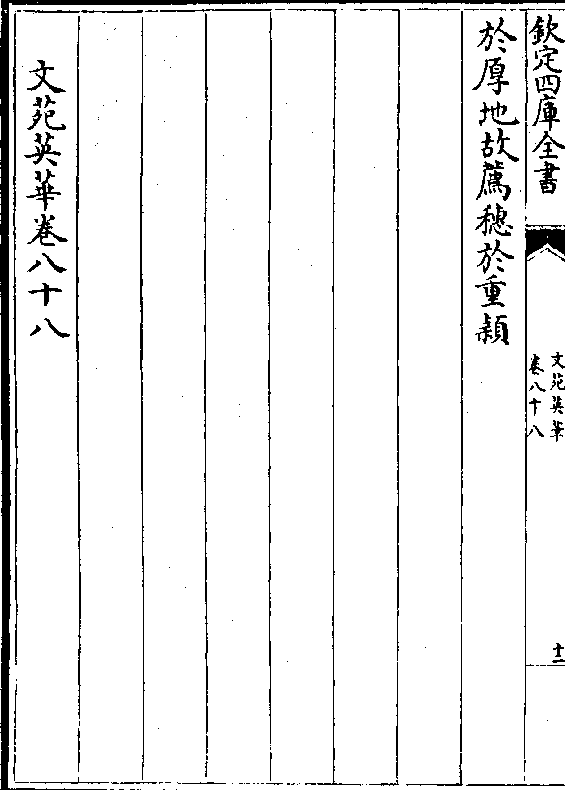 欽定四庫全書
文苑英華
卷八十八
十二
於厚地故薦穗於重穎
文苑英華卷八十八